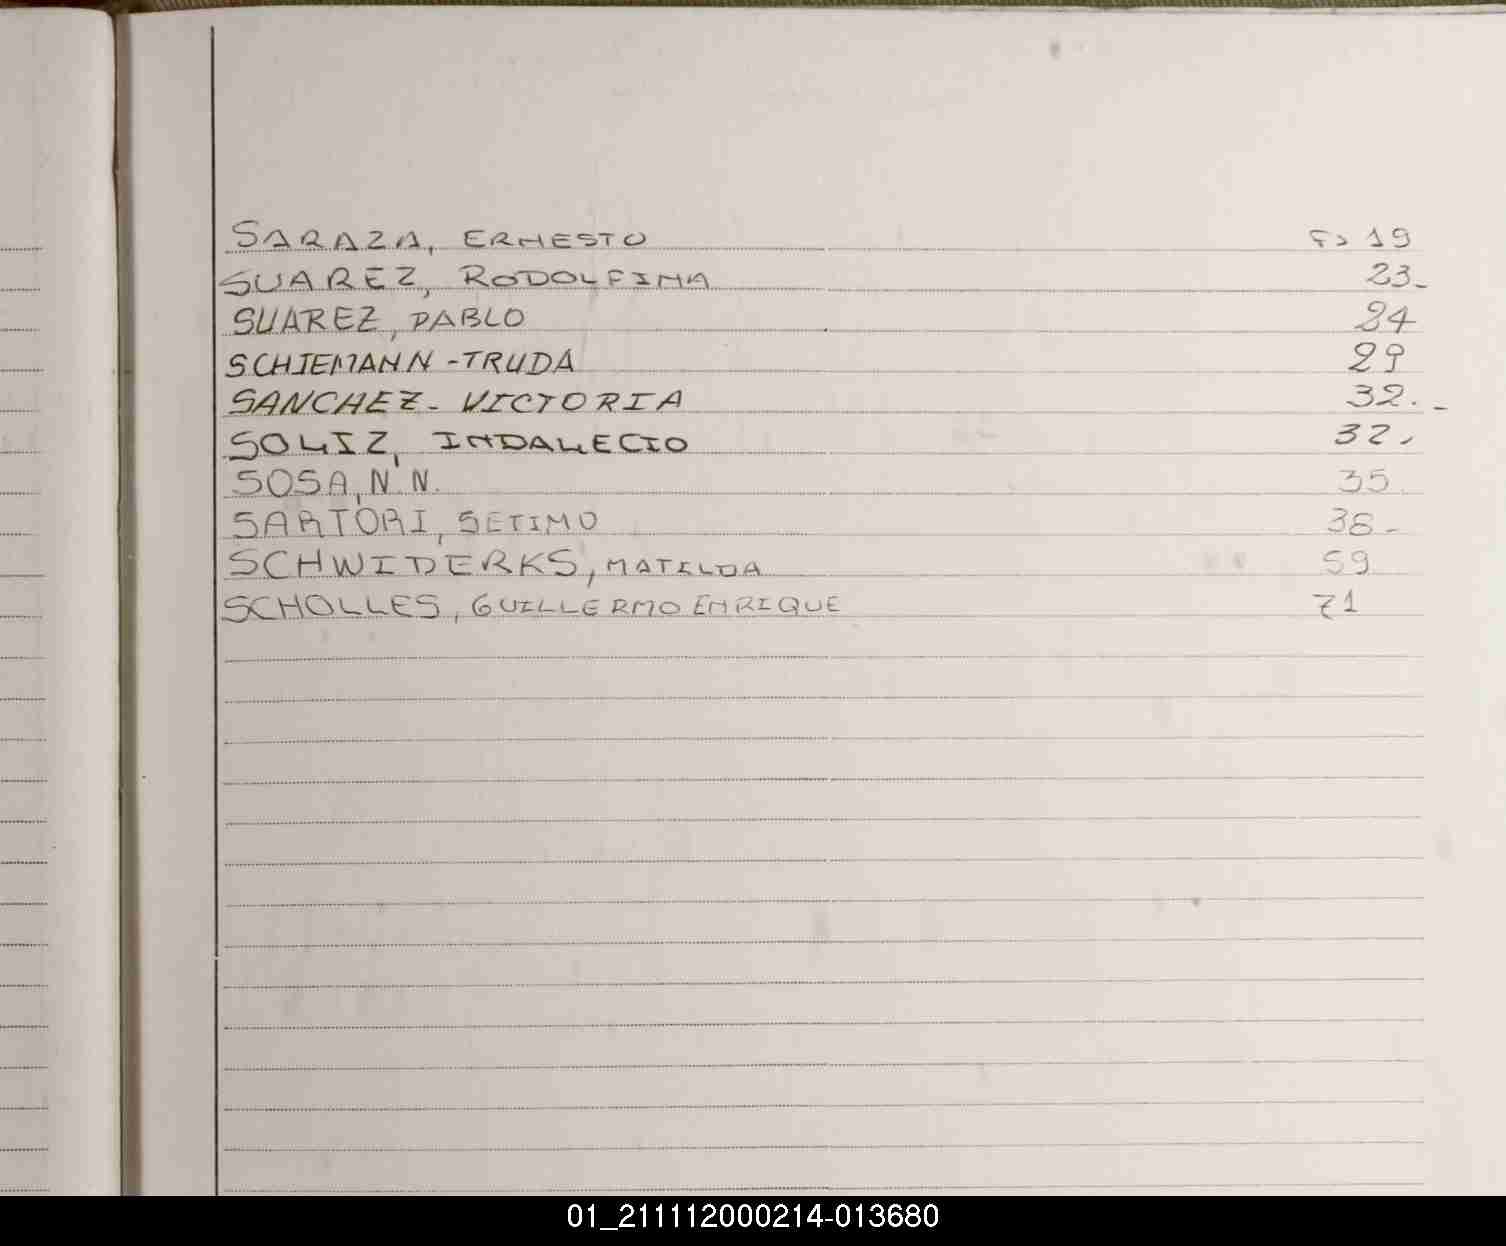 SARAZA, ERNESTO Fs 19
SUAREZ, RODOLFINA 23-
SUAREZ, PABLO 24
SCHIEMANN-TRUDA 29
SANCHEZ- VICTORIA 32.-
SOLIZ, INDALECIO 32.
SOSA, N.N. 35.
SARTORI, SETIMO 38-
SCHWIDERKS, MATILDA 59
SCHOLLES, GUILLERMO ENRIQUE 71
01_211112000214-013680